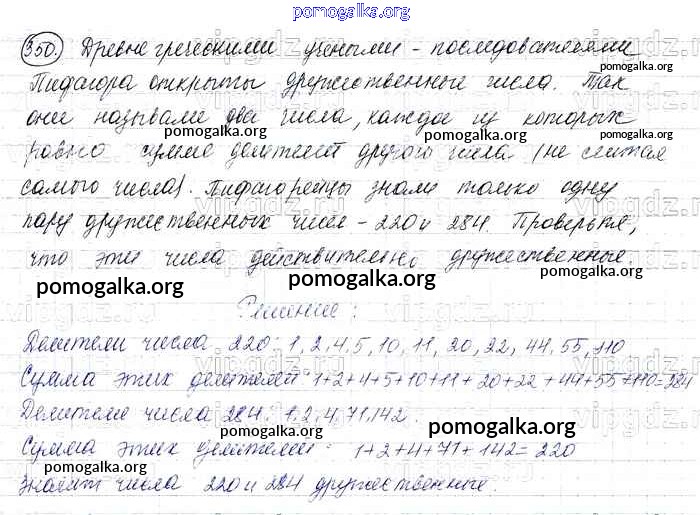 pomogalka.org
350. Древнегреческими учеными - последователями
Пифагора открыты дружественные числа. Так
они называли два числа, каждое из которых
равно сумме делителей другого числа (не считая
самого числа). Пифагорейцы знали только одну
пару дружественных чисел - 220 и 284. Проверьте,
что эти числа действительно дружественные.
pomogalka.org pomogalka.org pomogalka.org
Решение:
Делители числа 220: 1, 2, 4, 5, 10, 11, 20, 22, 44, 55, 110
Сумма этих делителей: 1+2+4+5+10+11+20+22+44+55+110=284
Делители числа 284: 1, 2, 4, 71, 142.
Сумма этих делителей: 1+2+4+71+142=220
Значит числа 220 и 284 дружественные.